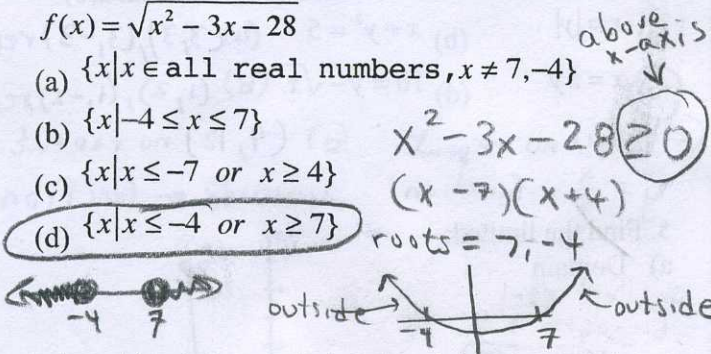 f(x) = √x² − 3x − 28
(a) {x|x ∈ all real numbers, x ≠ 7,−4}
(b) {x|−4 ≤ x ≤ 7}
(c) {x|x ≤ −7 or x ≥ 4}
(d) {x|x ≤ −4 or x ≥ 7}
−4 7
above
x-axis
x² − 3x − 28 ≥ 0
(x − 7)(x + 4)
roots = 7, −4
outside −4 7 outside